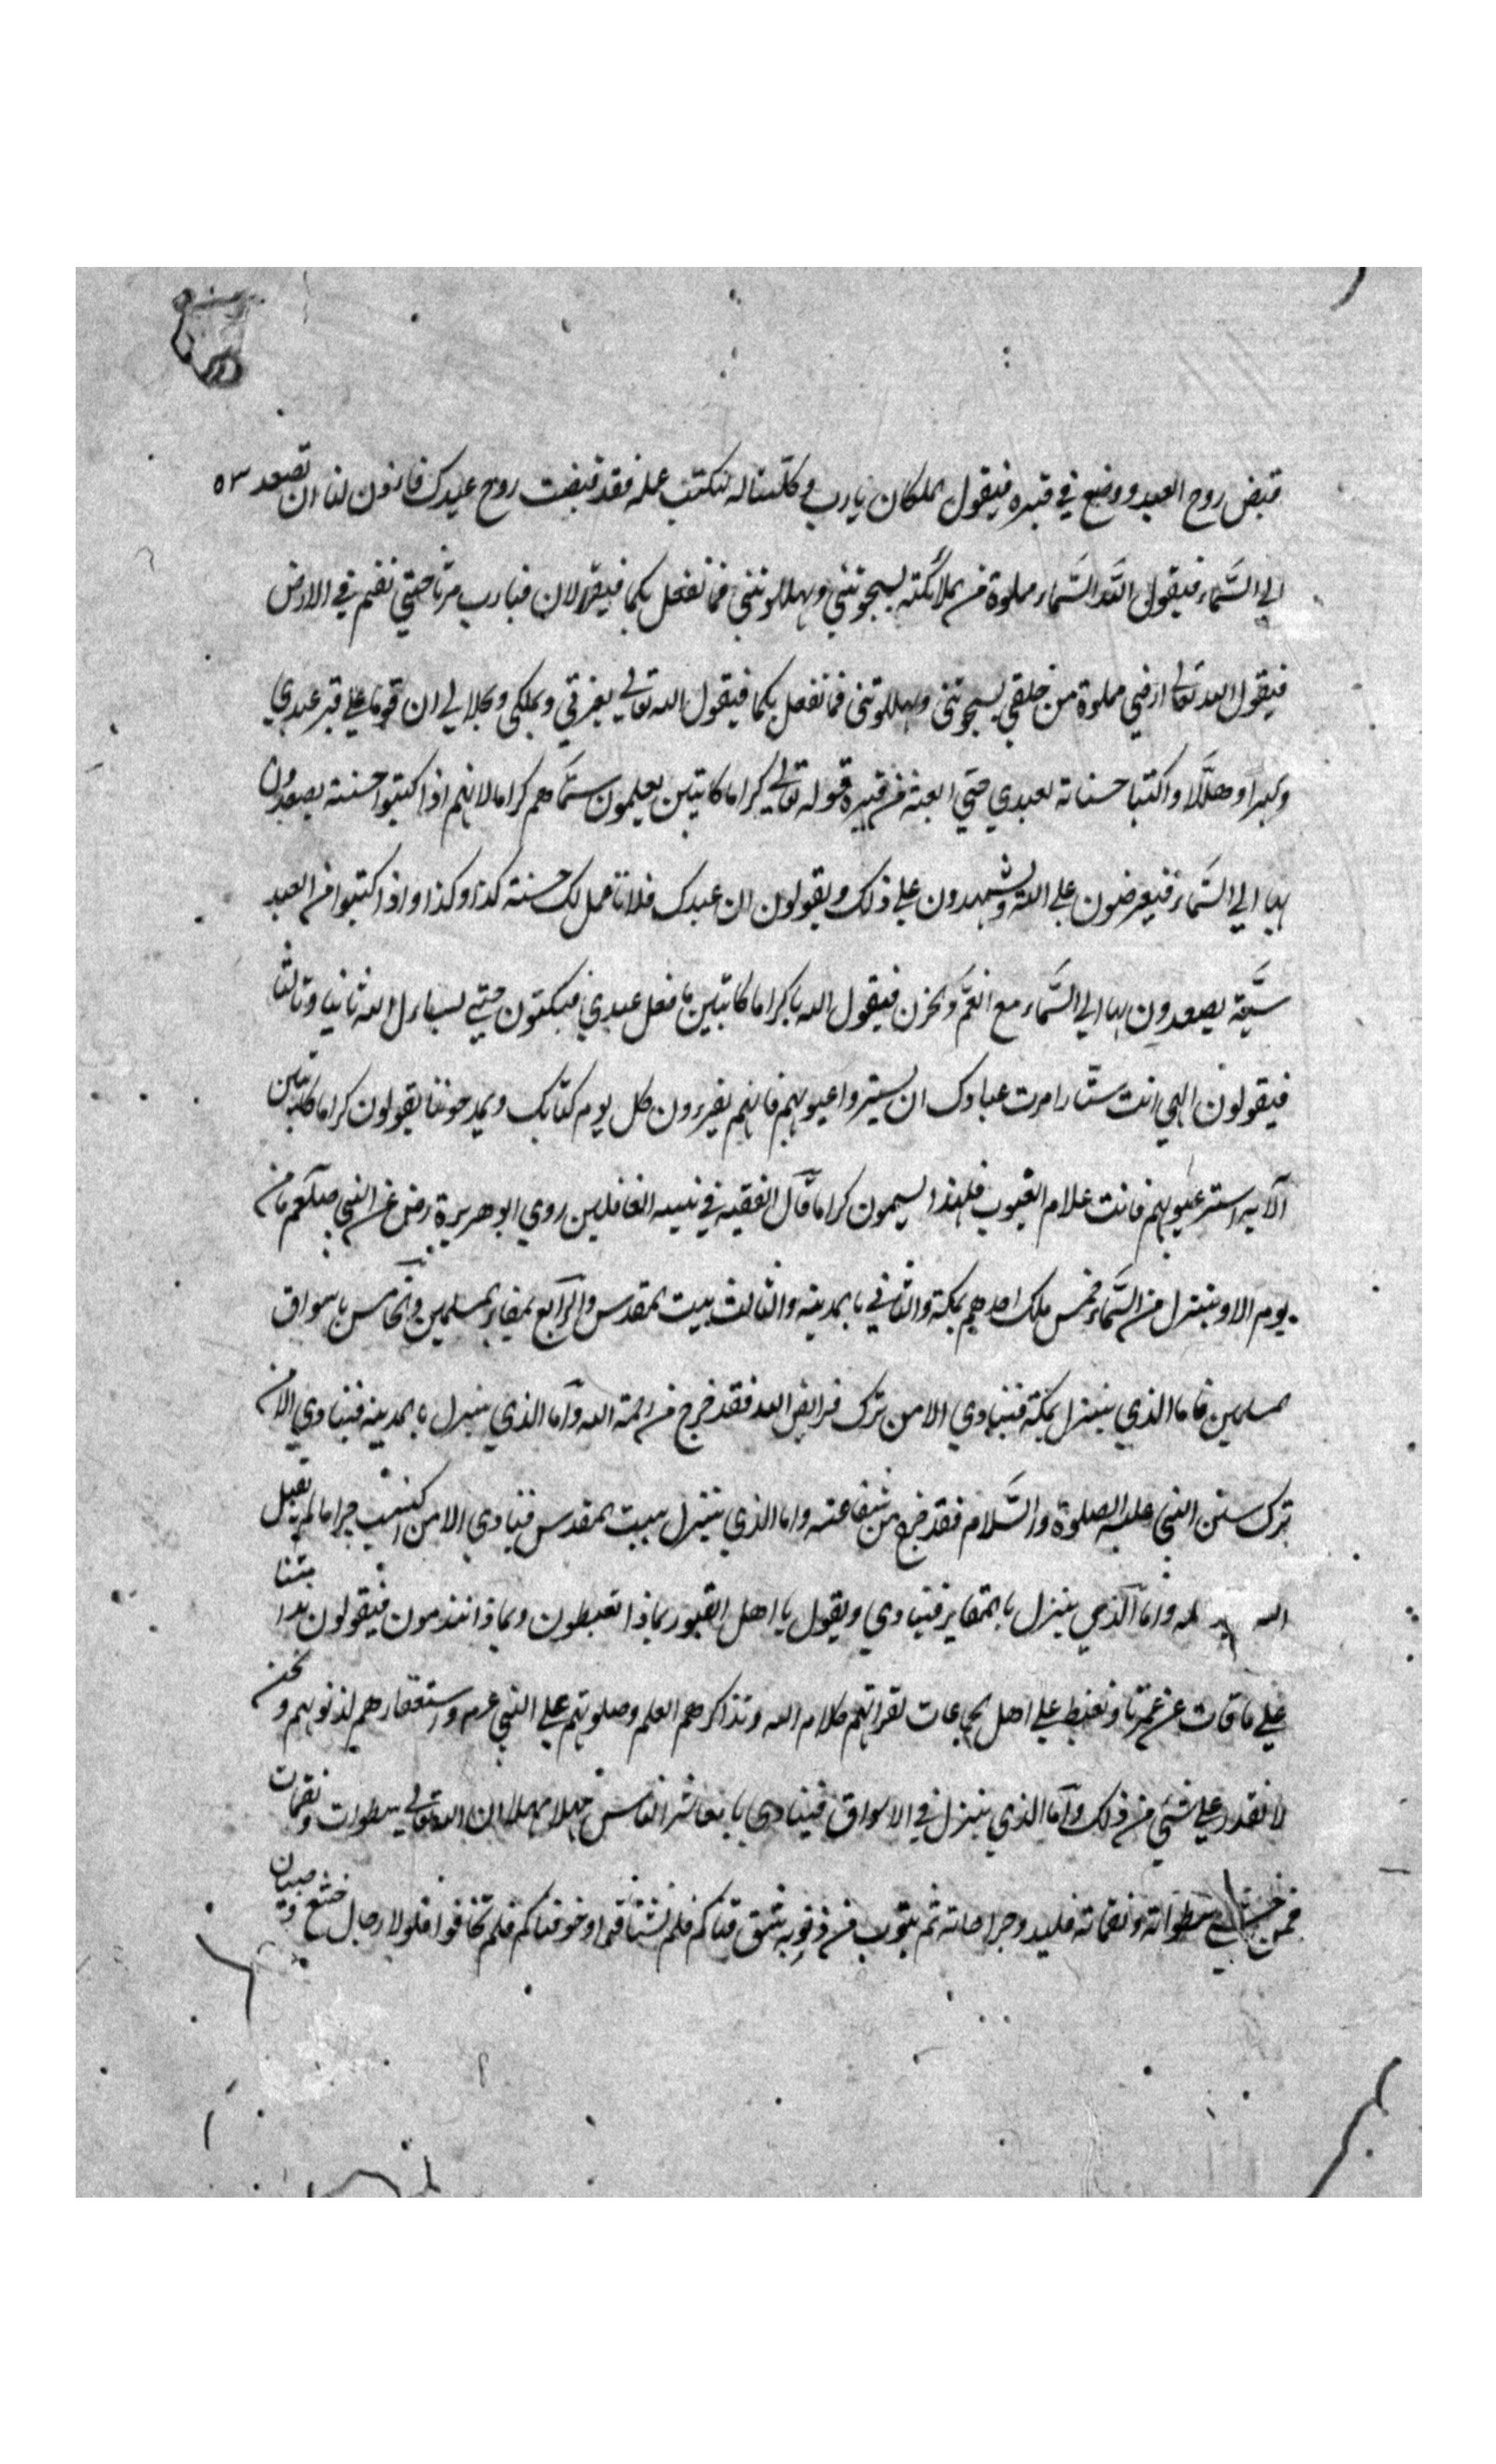 قبض روح العبد ووضع في قبره فيقول الملكان يارب وكلتنا له نكتب عمله فقد قبضت روح عبدك فاذن لنا ان تصعد ٥٣
الي السَّماء فيقول اللّٰه السَّماء مملوة من الملائكته يسبحونني ويهللونني فما نفعل بكما فيقولان فيارب مرنا حتي نقم في الارض
فيقول الله تعالى ارضي مملوة من خلقي يسبحونني ويهللونني فما نفعل بكما فيقول الله تعالي بعزتي وبملكي وبجلالي ان قوما علي قبر عبدي
وكبرا وهلّلا واكتبا حسناته لعبدي حتي ابعثه من قبره قوله تعالي كراما كاتبين يعلمون سمّاهم كراما لانهم اذا كتبوا حسنته يصعدون
بها الي السَّماء فيعرضون علي الله ويشهدون علي ذلك ويقولون ان عبدك فلانا عمل لك حسنة كذا وكذا واذا كتبوا من العبد
سيّئة يصعدون بها الي السَّماء مع الغمّ والحزن فيقول الله يا كراما كاتبين ما فعل عبدي فيسكتون حتي يسال الله ثانيا وثالثا
فيقولون الهي انت ستّار امرت عبادك ان يستروا عيوبهم فانهم يقرءون كل يوم كتابك ويمدحوننا يقولون كراما كاتبين
الآية استر عيوبهم فانت علام الغيوب فلهذا يسمون كراما قال الفقيه في تنبيه الغافلين روي ابو هريرة رض عن النبي صلعم ما من
يوم الا وينزل من السَّماء خمس ملك احدهم بمكة والثاني بالمدينه والثالث ببيت المقدس والرّابع بمقابر المسلمين والخامس باسواق
المسلمين فاما الذي ينزل بمكة فينادي الا من ترك فرايض الله فقد خرج من رحمة الله وامّا الذي ينزل بالمدينه فينادي الا من
ترك سنن النبي عليه الصلوة والسَّلام فقد خرج من شفاعته واما الذي ينزل ببيت المقدس فينادي الا من اكتسب حراما لم يقبل
الله له وامّا الّذي ينزل بالمقابر فينادي ويقول يا اهل القبور بماذا تغبطون وبماذا تندمون فيقولون ندا متنا
علي ما فات من عمرنا ونغبط علي اهل الجماعات لقرائتهم كلام الله وتذاكرهم العلم وصلوتهم علي النبي عم واستغفارهم لذنوبهم ونحن
لا نقدر علي شئي من ذلك وامّا الذي ينزل في الاسواق فينادي يا معاشر الناس مهلا مهلا ان الله تعالي سطوات ونقمات
فمن خشي سطواته ونقماته فليد وجراحاته ثم يتوب من ذنوبه شوقناكم فلم تشتاقوا وخوفناكم فلم تخافوا فلولا رجال خشع وصبيان